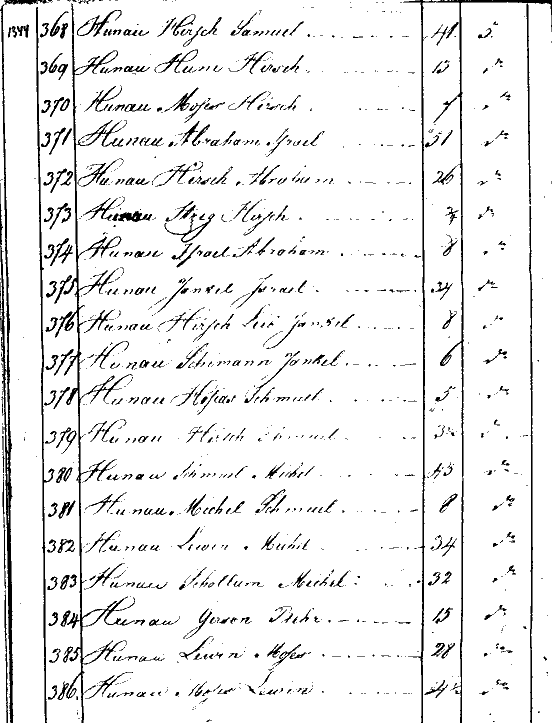 1844 368 Hunau Hirsch Samuel 41 5.
369 Hunau Hirsch 13 do
370 Hunau Moses Hirsch 7 do
371 Hunau Abraham Israel 51 do
372 Hunau Hirsch Abraham 26 do
373 Hunau Hirsch do
374 Hunau Israel Abraham 8 do
375 Hunau Jankel Israel 34 do
376 Hunau Hirsch Jankel 8 do
377 Hunau Schimann Jankel 6 do
378 Hunau Schmuel 5 do
379 Hunau Hirsch Schmuel do
380 Hunau Schmuel Michel 43 do
381 Hunau Michel Schmuel 8 do
382 Hunau Lewin Michel 34 do
383 Hunau Schollum Michel 32 do
384 Hunau Gerson 15 do
385 Hunau Lewin Moses 28 do
386 Hunau Moses Lewin